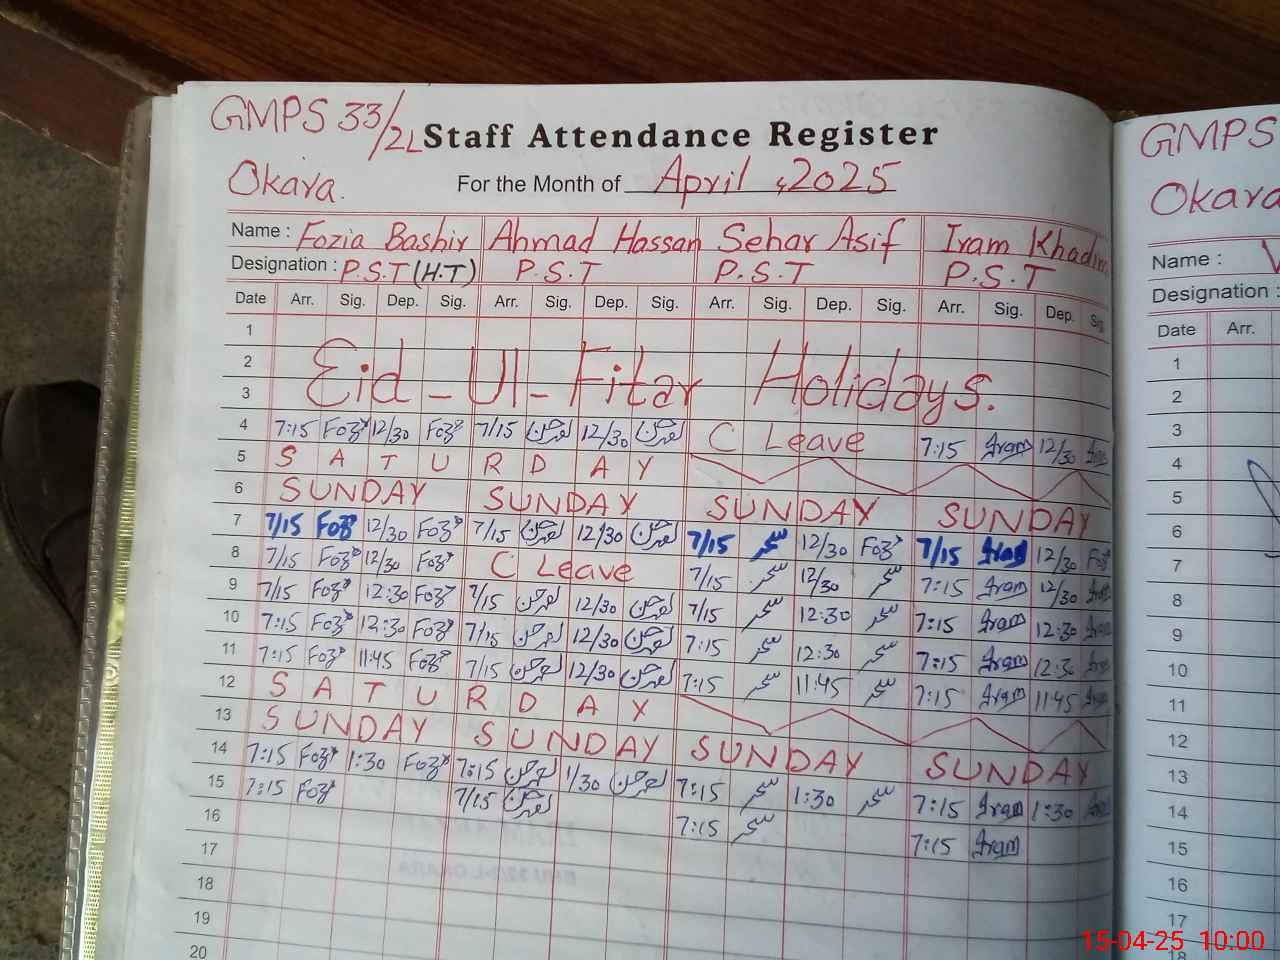 GMPS 33/2L Staff Attendance Register
Okara. For the Month of April, 2025
Name : Fozia Bashir Ahmad Hassan Sehar Asif Iram Khadim
Designation : P.S.T (H.T) P.S.T P.S.T P.S.T
Date Arr. Sig. Dep. Sig. Arr. Sig. Dep. Sig. Arr. Sig. Dep. Sig. Arr. Sig. Dep. Sig.
1
2 Eid-Ul-Fitar Holidays.
3
4 7:15 Foz 12/30 Foz 7/15 12/30 C Leave 7:15 Iram 12/30 Iram
5 S A T U R D A Y
6 SUNDAY SUNDAY SUNDAY SUNDAY
7 7/15 Foz 12/30 Foz 7/15 12/30 7/15 سحر 12/30 Foz 7/15 Iram 12/30 Foz
8 7/15 Foz 12/30 Foz C Leave 7/15 سحر 12/30 سحر 7:15 Iram 12/30 Iram
9 7/15 Foz 12:30 Foz 7/15 12/30 7/15 سحر 12:30 سحر 7:15 Iram 12:30 Iram
10 7:15 Foz 12:30 Foz 7/15 12/30 7:15 سحر 12:30 سحر 7:15 Iram 12:30 Iram
11 7:15 Foz 11:45 Foz 7/15 12/30 7:15 سحر 11:45 سحر 7:15 Iram 11:45 Iram
12 S A T U R D A Y
13 SUNDAY SUNDAY SUNDAY SUNDAY
14 7:15 Foz 1:30 Foz 7:15 1/30 7:15 سحر 1:30 سحر 7:15 Iram 1:30 Iram
15 7:15 Foz 7/15 7:15 سحر 7:15 Iram
16
17
18
19
20
GMPS
Okara
Name :
Designation :
Date Arr.
1
2
3
4
5
6
7
8
9
10
11
12
13
14
15
16
17
18
15-04-25 10:00